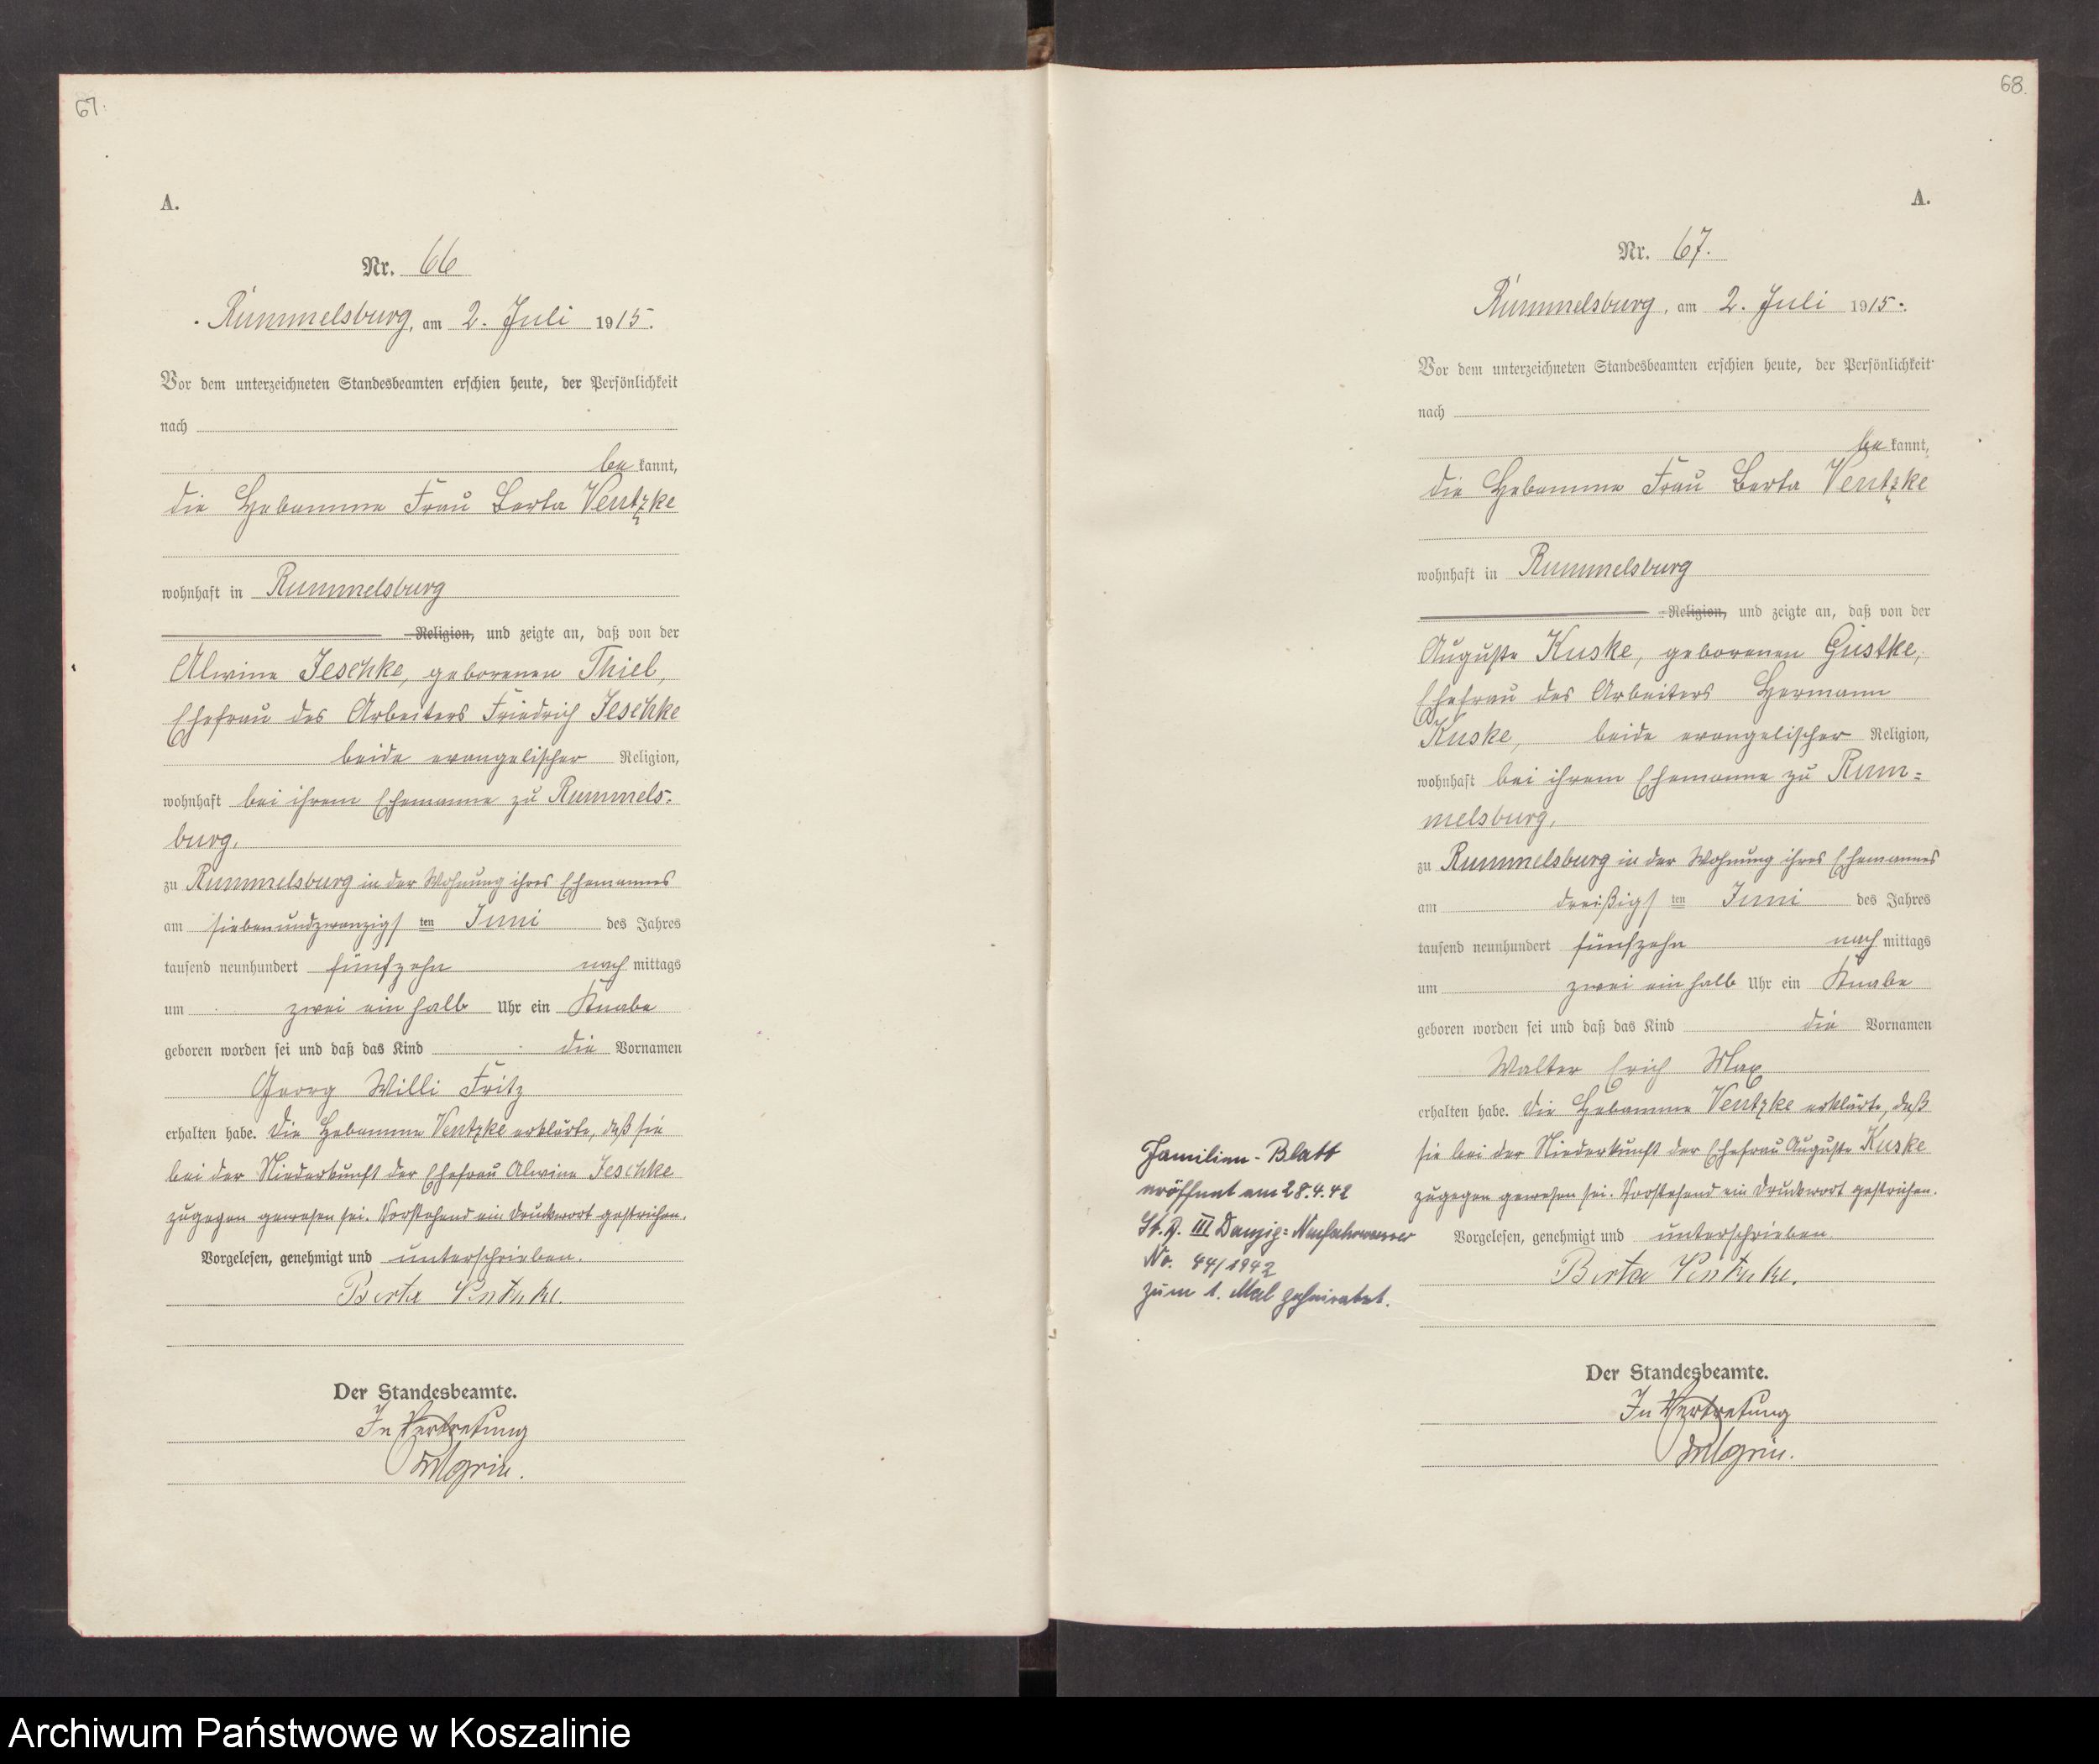 67.
A.
Nr. 66
Rummelsburg, am 2. Juli 1915.
Vor dem unterzeichneten Standesbeamten erschien heute, der Persönlichkeit
nach
be kannt,
die Hebamme Frau Berta Ventzke
wohnhaft in Rummelsburg
Religion, und zeigte an, daß von der
Alwine Jeschke, geborenen Thiel,
Ehefrau des Arbeiters Friedrich Jeschke
beide evangelischer Religion,
wohnhaft bei ihrem Ehemanne zu Rummels-
burg,
zu Rummelsburg in der Wohnung ihres Ehemannes
am siebenundzwanzigsten Juni des Jahres
tausend neunhundert fünfzehn nachmittags
um zwei ein halb Uhr ein Knabe
geboren worden sei und daß das Kind die Vornamen
Georg Willi Fritz
erhalten habe. Die Hebamme Ventzke erklärte, daß sie
bei der Niederkunft der Ehefrau Alwine Jeschke
zugegen gewesen sei. Vorstehend ein Druckwort gestrichen.
Vorgelesen, genehmigt und unterschrieben.
Berta Ventzke.
Der Standesbeamte.
In Vertretung
68.
A.
Nr. 67.
Rummelsburg, am 2. Juli 1915.
Vor dem unterzeichneten Standesbeamten erschien heute, der Persönlichkeit
nach
be kannt,
die Hebamme Frau Berta Ventzke
wohnhaft in Rummelsburg
Religion, und zeigte an, daß von der
Auguste Kuske, geborenen Gustke,
Ehefrau des Arbeiters Hermann
Kuske, beide evangelischer Religion,
wohnhaft bei ihrem Ehemanne zu Rum-
melsburg,
zu Rummelsburg in der Wohnung ihres Ehemannes
am dreißigsten Juni des Jahres
tausend neunhundert fünfzehn nachmittags
um zwei ein halb Uhr ein Knabe
geboren worden sei und daß das Kind die Vornamen
Walter Erich Max
erhalten habe. Die Hebamme Ventzke erklärte, daß
sie bei der Niederkunft der Ehefrau Auguste Kuske
zugegen gewesen sei. Vorstehend ein Druckwort gestrichen.
Vorgelesen, genehmigt und unterschrieben.
Berta Ventzke.
Der Standesbeamte.
In Vertretung
Familien-Blatt
eröffnet am 28.4.42
St.A. III Danzig-Neufahrwasser
No. 44/1942
zum 1. Mal geheiratet.
Archiwum Państwowe w Koszalinie